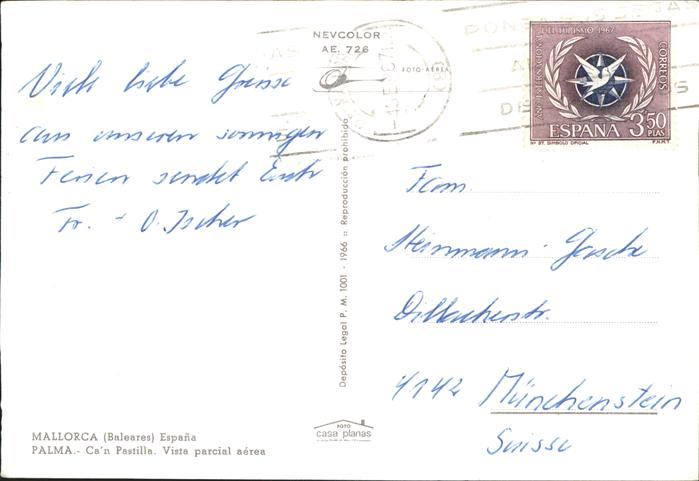 NEVCOLOR
AE. 726
FOTO-AÉREA
Viele liebe Grüsse
aus unseren sonnigen
Ferien sendet Euch
Fr. + O. Tscher
Depósito Legal P. M. 1001 - 1966 :: Reproducción prohibida
MALLORCA (Baleares) España
PALMA.- Ca'n Pastilla. Vista parcial aérea
FOTO
casa planas
PONGA
AÑO INTERNACIONAL DEL TURISMO 1967
CORREOS
ESPAÑA 3,50 PTAS
Nº 37. SIMBOLO OFICIAL F.N.M.T.
Fam.
Steinmann-
4142 Münchenstein
Suisse